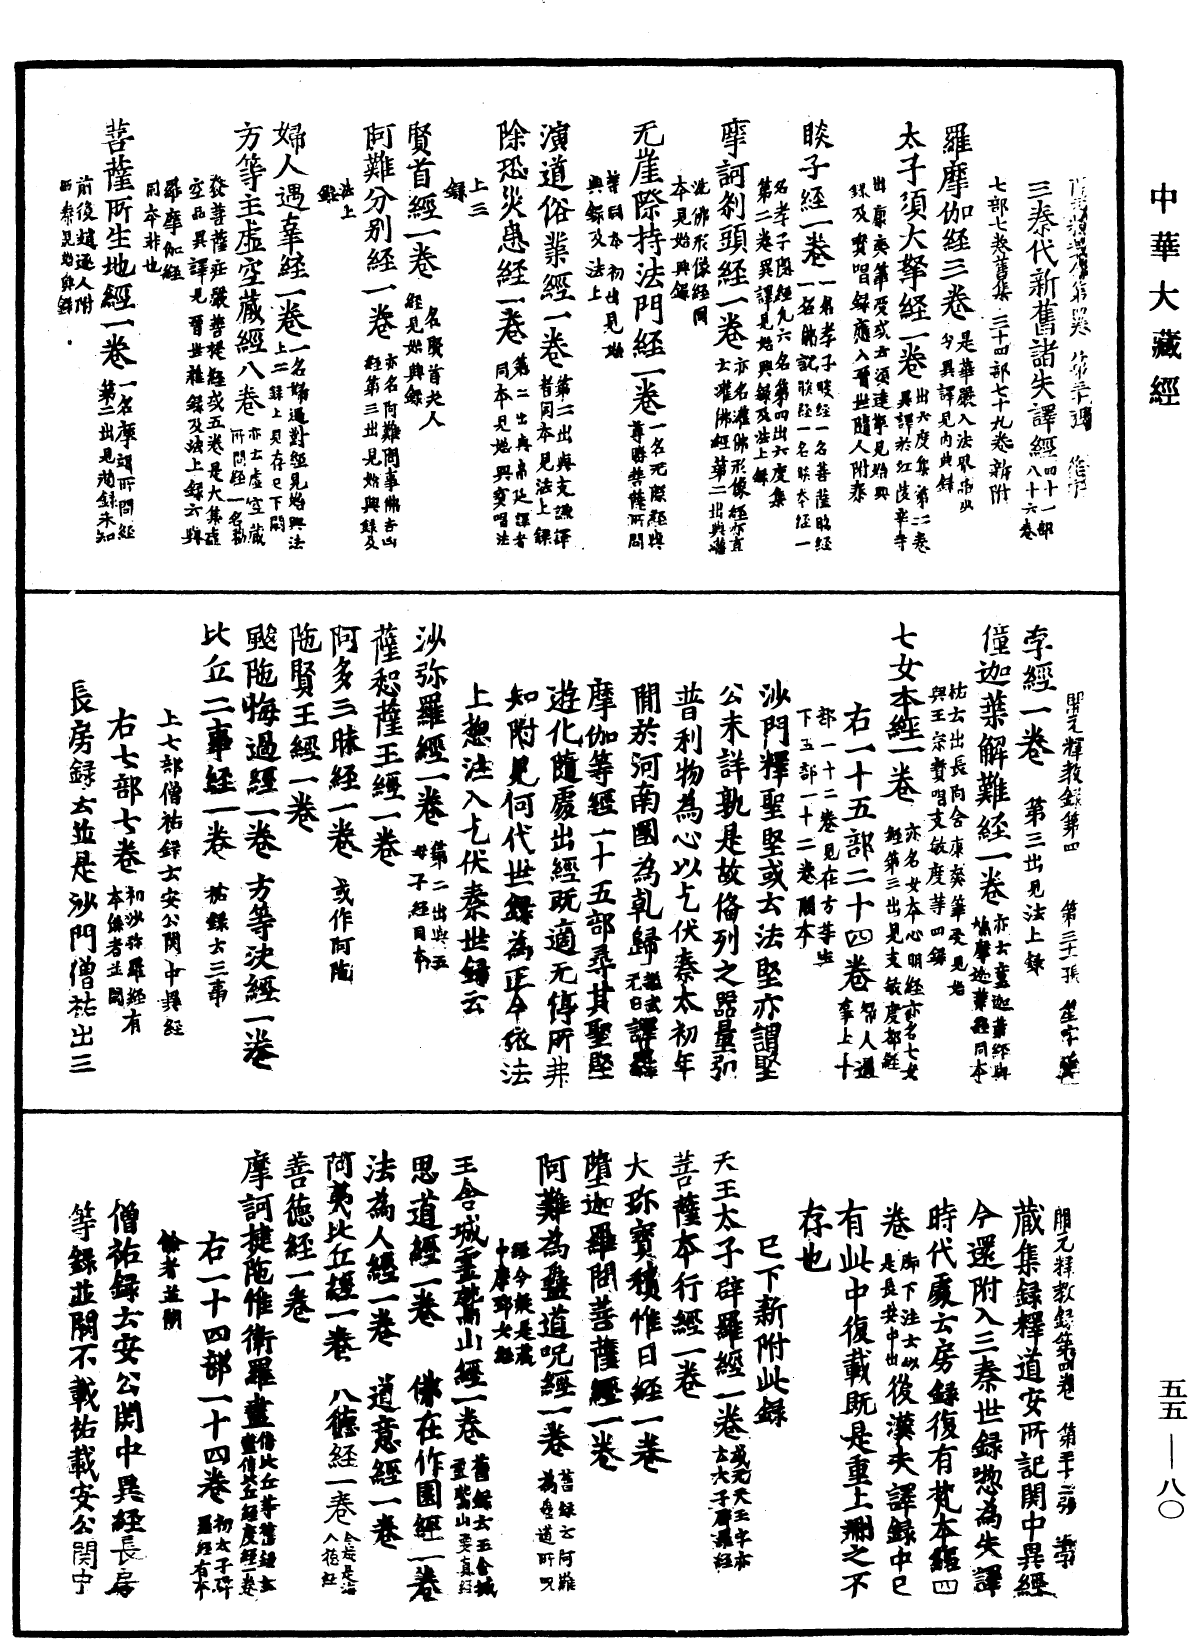 中華大藏經
三秦代新舊諸失譯經四十一部八十六卷
七部七卷舊集三十四部七十九卷新附
羅摩伽經三卷是華嚴入法界品出今異譯見內典錄
太子須大拏經一卷出六度集第二卷異譯於江陵辛寺
出庾爽筆受或云須達拏見始興錄及寶唱錄應入晉世隨人附秦
睒子經一卷一名孝子睒經一名菩薩睒經一名佛說睒經一名睒本經一
名孝子隱經凡六名第四出六度集第二卷異譯見始興錄及法上錄
摩訶剎頭經一卷亦名灌佛形像經亦直云灌佛經第二出與灌
洗佛形像經同本見始興錄
无崖際持法門經一卷一名无際經與尊勝菩薩所問
等同本初出見始興錄及法上
演道俗業經一卷第二出與支謙譯者同本見法上錄
除恐災患經一卷第二出與帛延譯者同本見始興寶唱法
上三錄
賢首經一卷名賢首夫人經見始興錄
阿難分別經一卷亦名阿難問事佛吉凶經第三出見始興錄及
法上錄
婦人遇辜經一卷一名婦遇對經見始興法上二錄上見存已下闕
方等主虛空藏經八卷亦云虛空藏所問經一名勸
發菩薩莊嚴菩提經或五卷是大集虛空品異譯見晉世雜錄及法上錄六與
羅摩伽經同本非也
菩薩所生地經一卷一名摩竭所問經第二出見舊錄未知
前後趙逐人附西秦見始興錄
開元釋教錄第四
孛經一卷第三出見法上錄
僮迦葉解難經一卷亦云童迦葉經與鳩摩迦葉經同本
祐云出長阿含庾爽筆受見始興王宗寶唱支敏度等四錄
七女本經一卷亦名女本心明經亦名七女經第三出見支敏度都經
右一十五部二十四卷婦人遇辜上十
部一十二卷見在方等些下五部一十二卷闕本
沙門釋聖堅或云法堅亦謂堅
公未詳孰是故俻列之器量弘
普利物為心以乞伏秦太初年
間於河南國為乾歸譯羅
摩伽等經一十五部尋其聖堅
遊化隨處出經既適无停所弗
知附見何代世錄為正今依法
上揔注入乞伏秦世錄云
沙弥羅經一卷第二出與五母子經同本
薩惒薩王經一卷
阿多三昧經一卷或作阿陁
陁賢王經一卷
颰陁悔過經一卷方等決經一卷
比丘二事經一卷祐錄云三事
上七部僧祐錄云安公關中異經
右七部七卷初沙弥羅經有本係者並闕
長房錄云並是沙門僧祐出三
藏集錄釋道安所記關中異經
今還附入三秦世錄揔為失譯
時代處云房錄復有梵本經四
卷脚下注云似是長安中出後漢失譯錄中已
有此中復載既是重上刪之不
存也
已下新附此錄
天王太子辟羅經一卷或无天王字亦云太子辟羅經
菩薩本行經一卷
大珎寶積惟日經一卷
墮迦羅問菩薩經一卷
阿難為蠱道呪經一卷舊錄云阿難為蠱道所呪
經今疑是藏中摩鄧女經
王舍城靈鷲山經一卷舊錄云王舍城靈鷲山要直經
思道經一卷佛在作園經一卷
法為人經一卷道意經一卷
阿夷比丘經一卷八德經一卷今疑是海八德經
善德經一卷
摩訶揵陁惟衛羅盡信比丘等舊錄云盡信比丘經度經一卷
右一十四部一十四卷初太子辟羅經有本
餘者並闕
僧祐錄云安公關中異經長房
等錄並闕不載祐載安公關中
五五—八〇